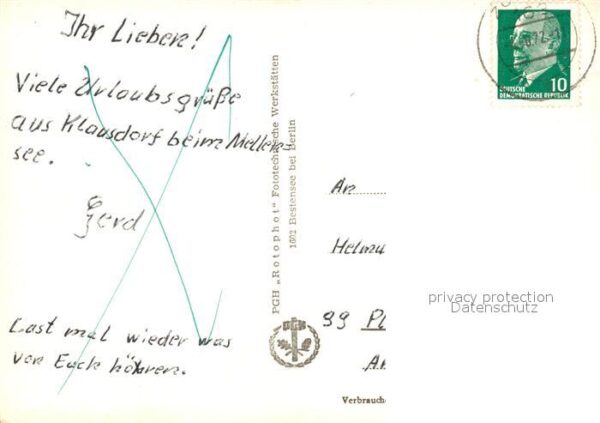 Ihr Lieben!
Viele Urlaubsgrüße
aus Klausdorf beim Mellen-
see.
Gerd
Last mal wieder was
von Euch hören.
PGH „Rotophot“ Fototechnische Werkstätten
1602 Bestensee bei Berlin
PGH
10
DEUTSCHE
DEMOKRATISCHE REPUBLIK
An
Helmu
99 Pl
privacy protection
Datenschutz
Verbrauche